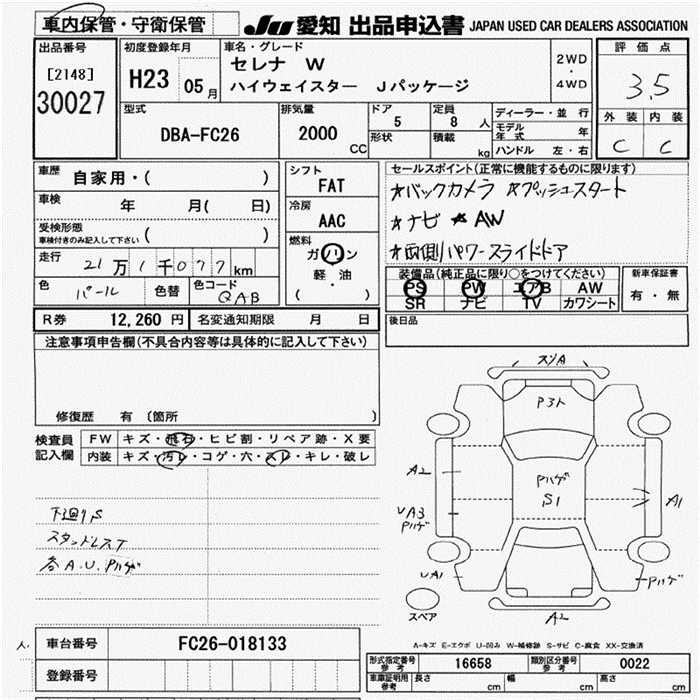 車内保管・守衛保管 JU 愛知 出品申込書 JAPAN USED CAR DEALERS ASSOCIATION
出品番号 [2148] 30027
初度登録年月 H23 05月
車名・グレード セレナ W
ハイウェイスター Jパッケージ
2WD・4WD
評価点 3.5
外装 内装
C C
型式 DBA-FC26
排気量 2000 CC
ドア 5
形状
定員 8 人
積載 kg
ディーラー・並行
モデル年式 年
ハンドル 左・右
車歴 自家用・( )
車検 年 月( 日)
受検形態 車検付きのみ記入して下さい ( )
走行 21万1千077km
色 パール 色替 色コード QAB
シフト FAT
冷房 AAC
燃料 ガソリン
軽・油
( )
セールスポイント(正常に機能するものに限ります)
★バックカメラ ★プッシュスタート
★ナビ ★AW
★両側パワースライドドア
装備品(純正品に限り○をつけてください)
PS PW エアB AW
SR ナビ TV カワシート
新車保証書
有・無
R券 12,260 円 名変通知期限 月 日
後日品
注意事項申告欄(不具合内容等は具体的に記入して下さい)
修復歴 有 〔箇所 )
検査員記入欄
FW キズ・飛石・ヒビ割・リペア跡・X要
内装 キズ・汚レ・コゲ・穴・スレ・キレ・破レ
下廻りS
スタッドレスT
各A.U.Pハゲ
スリA
P3ト
A2
Pハゲ
S1
A1
UA3
Pハゲ
UA1
Pハゲ
スペア
A2
A-キズ E-エクボ U-凹み W-補修跡 S-サビ C-腐食 XX-交換済
人.
車台番号 FC26-018133
登録番号
形式指定番号 参考 16658 類別区分番号 参考 0022
車庫証明用 参考 長さ cm 幅 cm 高さ cm